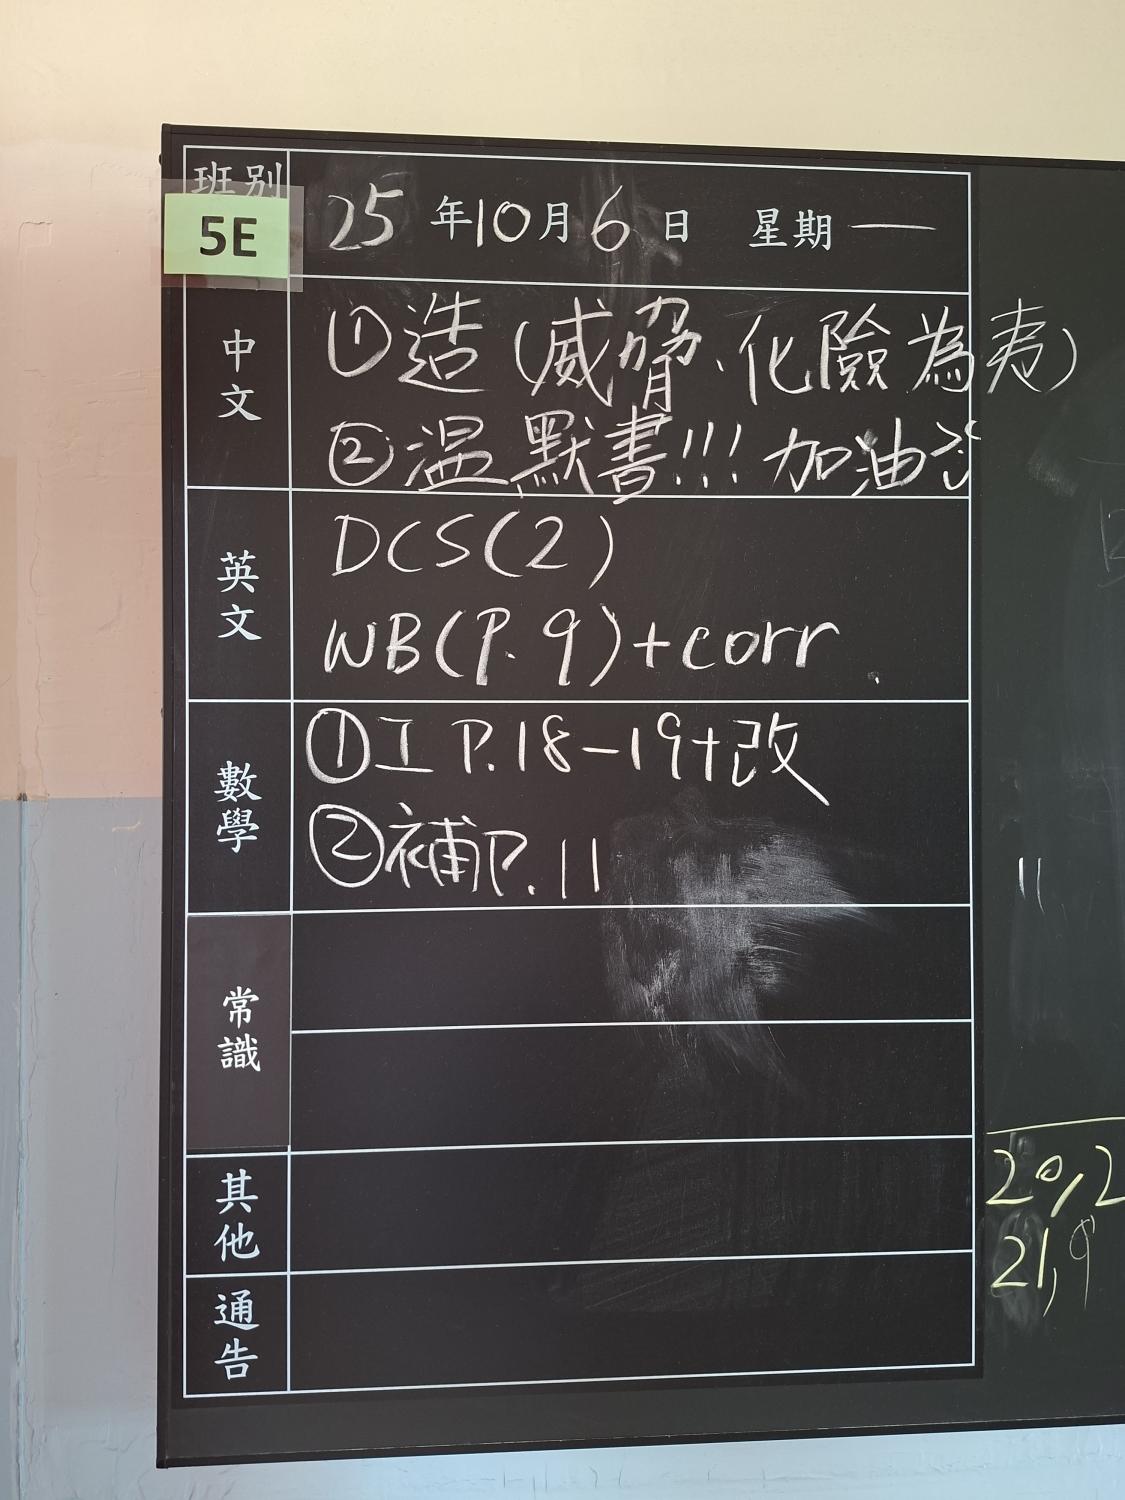 班別
5E
25年10月6日 星期一
中文
①造(威脅、化險為夷)
②溫默書!!! 加油
英文
DCS(2)
WB(P.9)+corr.
數學
①工 P.18-19+改
②補P.11
常識
其他
通告
20,2
21,9